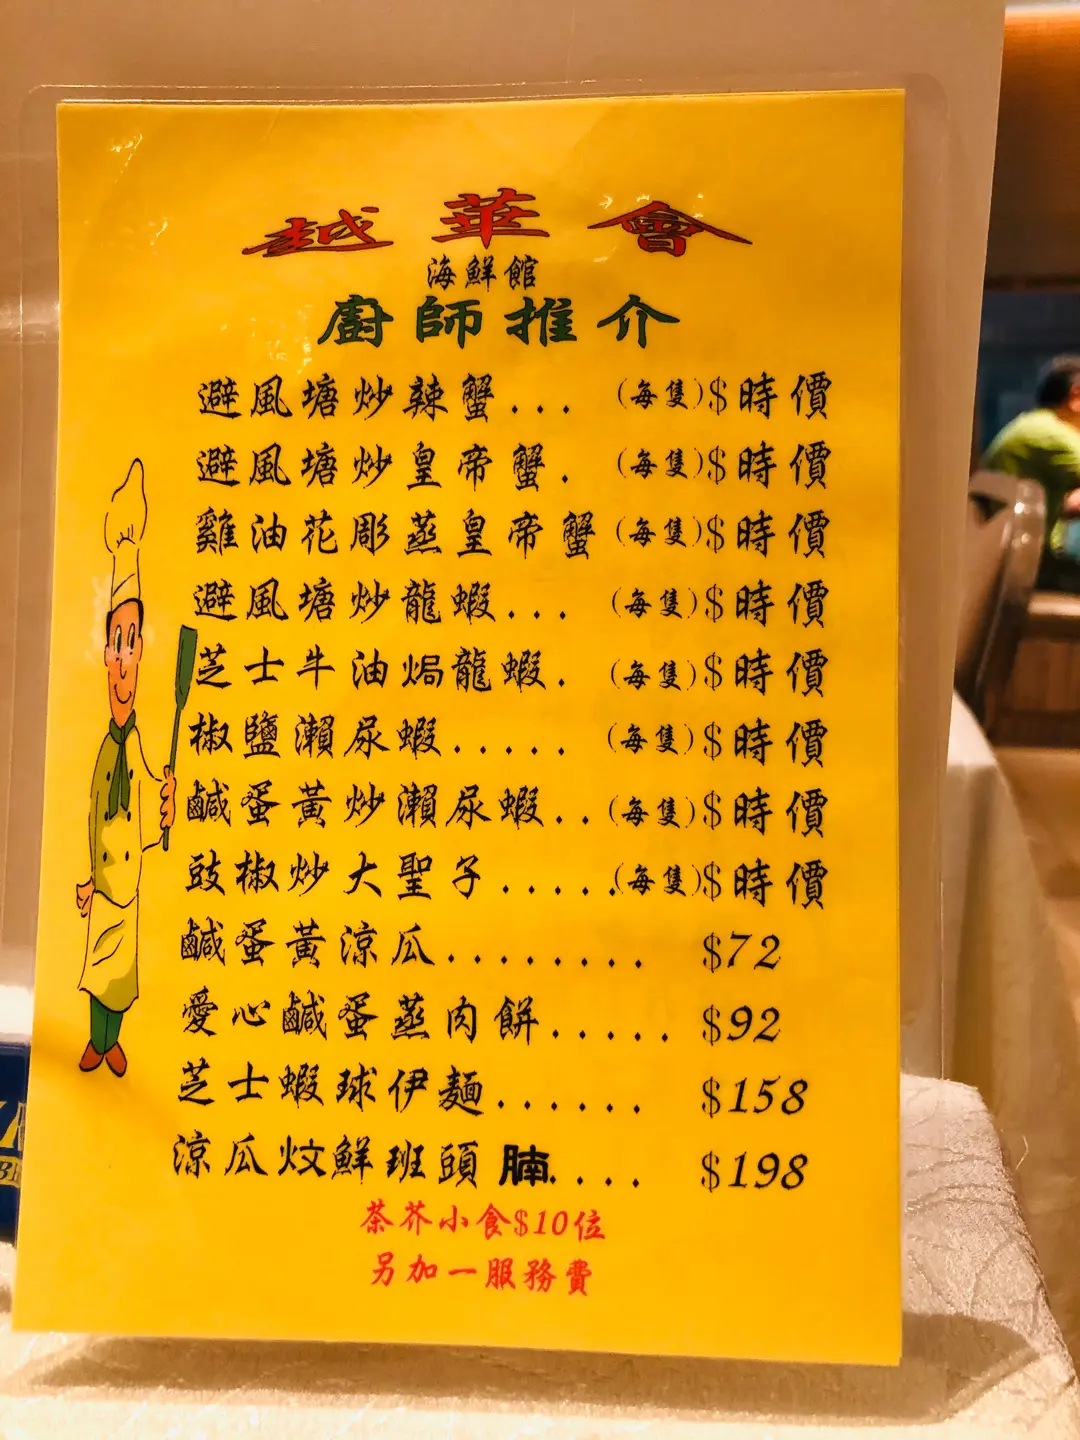 越華會
海鮮館
廚師推介
避風塘炒辣蟹...(每隻)$時價
避風塘炒皇帝蟹.(每隻)$時價
雞油花彫蒸皇帝蟹(每隻)$時價
避風塘炒龍蝦...(每隻)$時價
芝士牛油焗龍蝦.(每隻)$時價
椒鹽瀨尿蝦.....(每隻)$時價
鹹蛋黃炒瀨尿蝦..(每隻)$時價
豉椒炒大聖子.....(每隻)$時價
鹹蛋黃涼瓜........$72
愛心鹹蛋蒸肉餅.....$92
芝士蝦球伊麵......$158
涼瓜炆鮮班頭腩....$198
茶芥小食$10位
另加一服務費